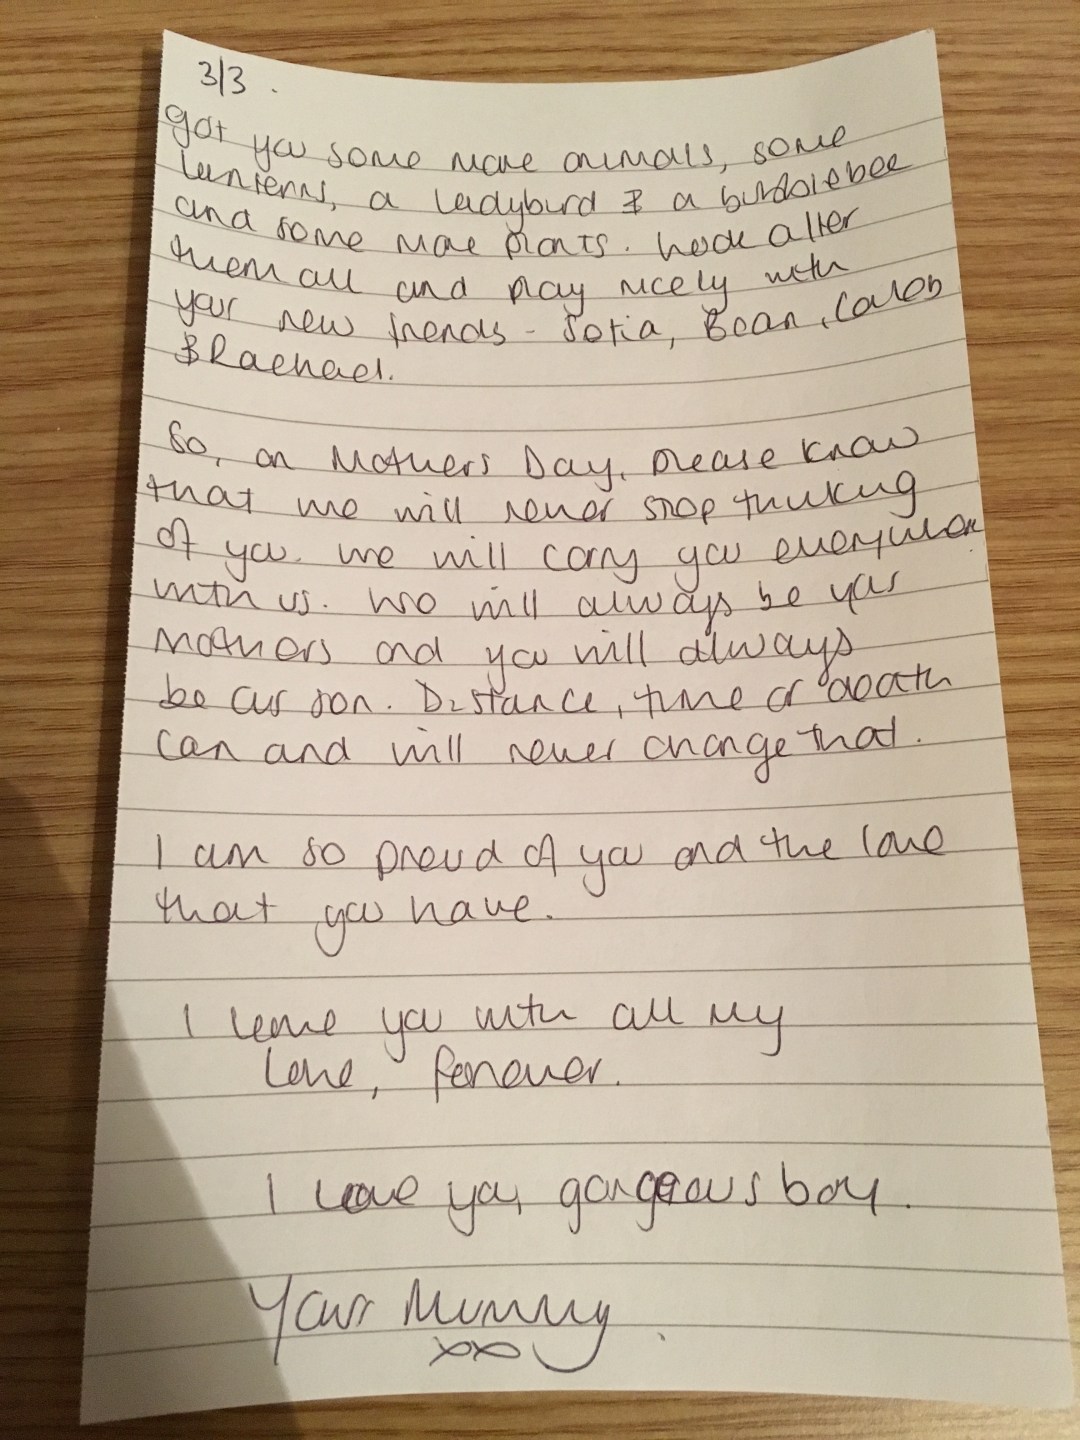 3/3.
got you some more animals, some
lanterns, a ladybird & a bumblebee
and some more plants. Look after
them all and play nicely with
your new friends - Sofia, Bean, Caleb
& Rachael.
So, on Mothers Day, please know
that we will never stop thinking
of you. We will carry you everywhere
with us. We will always be your
mothers and you will always
be our son. Distance, time or death
can and will never change that.
I am so proud of you and the love
that you have.
I leave you with all my
love, forever.
I love you, gorgeous boy.
Your Mummy
xx